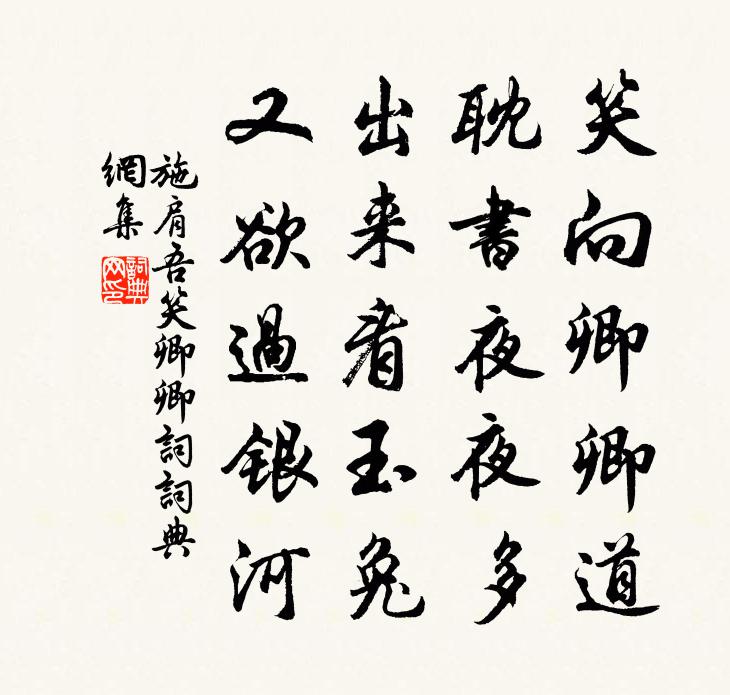 笑向卿卿道
耽書夜夜多
出来看玉兔
又欲過銀河
施肩吾笑卿卿詞詞典
網集
詞典
網印